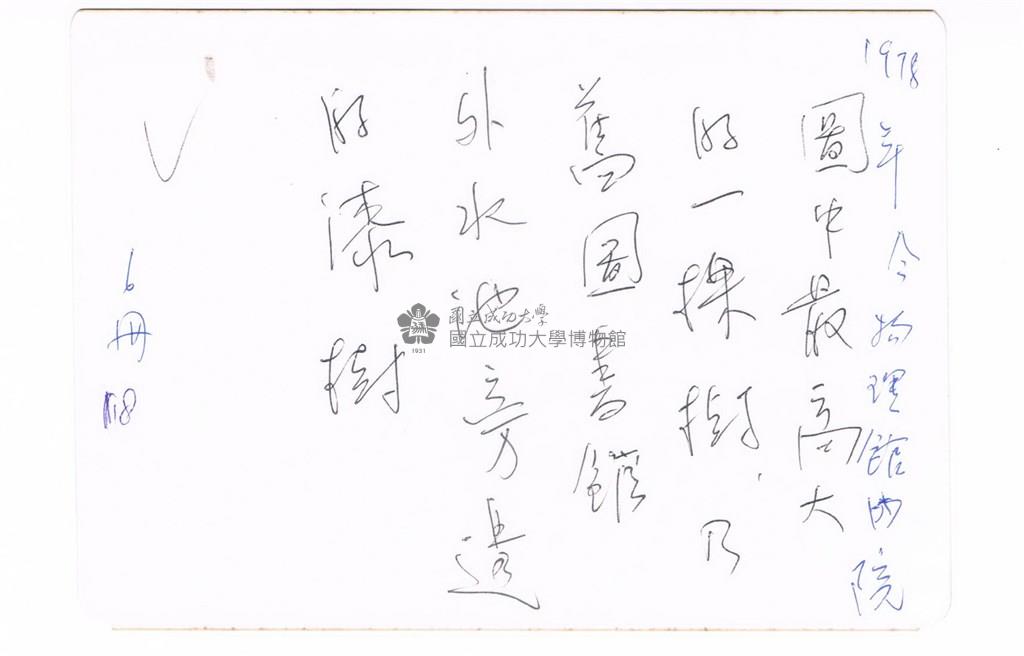 1978年今物理館內院
圖中最高大
的一棵樹，乃
舊圖書館
外水池旁邊
的漆樹
6冊
118
國立成功大學
國立成功大學博物館
1931